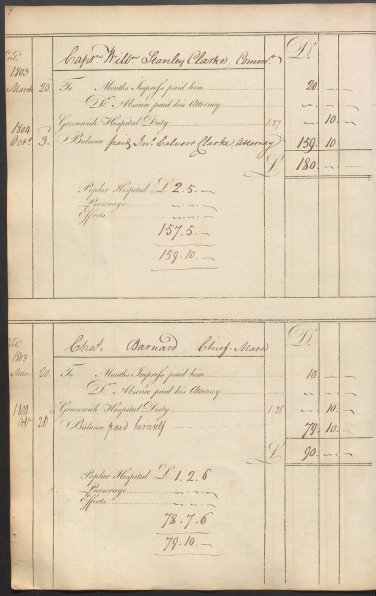 Capt.n Will.m Stanley Clarke Comm.r D.r
1803
March 20 To Months Impress paid him 20 . —
D.o Absence paid his Attorney — — —
1804 Greenwich Hospital Duty 1.27 — 10 . —
Oct.r 3. Balance paid Jn.o Calvert Clarke Attorney 159 . 10
£ 180 . — —
Poplar Hospital £ 2 . 5 . —
Pursorage
Effects
157 . 5 . —
159 . 10 . —
D.r
1803 Cha.s Barnard Chief Mate
Mar. 20. To Months Impress paid him 10 . — —
D.o Absence paid his Attorney — — —
1804 Greenwich Hospital Duty 1.26 — 10 . —
Oct.r 20 Balance paid himself 79 . 10 . —
£ 90 . — —
Poplar Hospital £ 1 . 2 . 6
Pursorage
Effects
78 . 7 . 6
79 . 10 . —